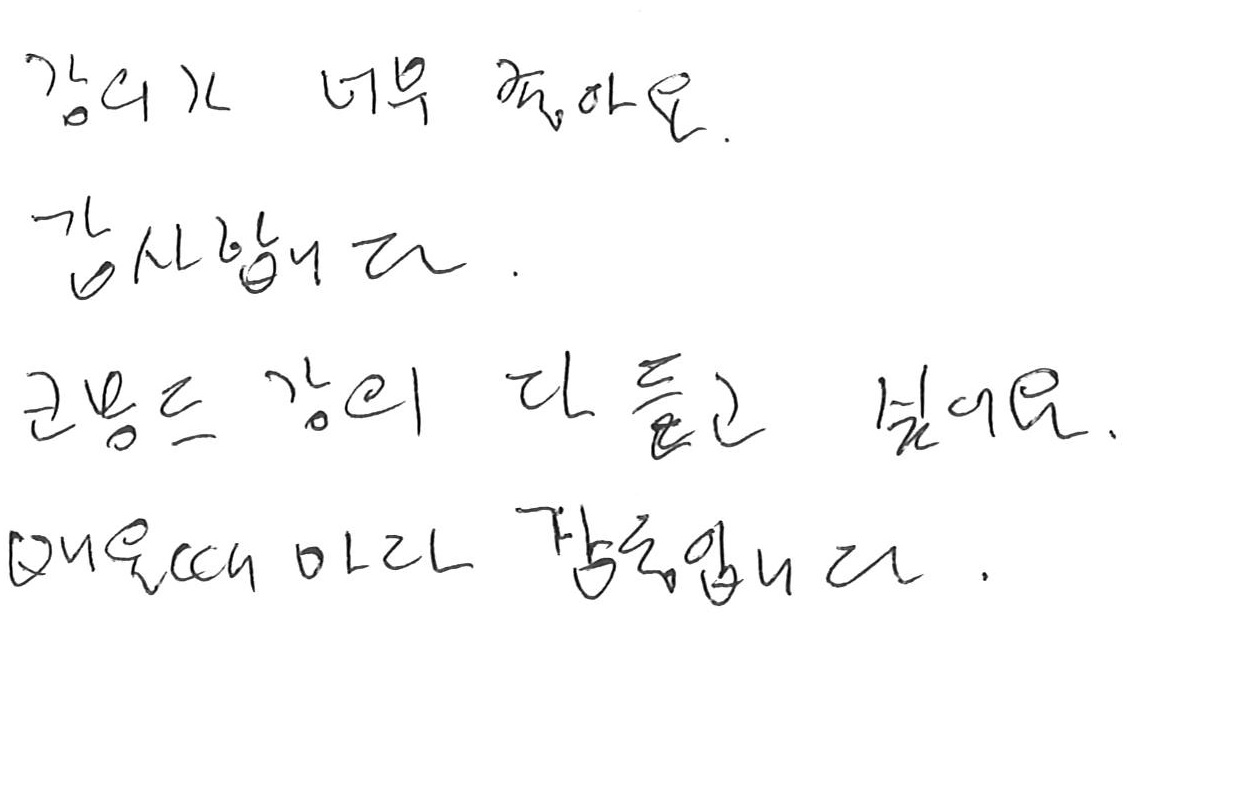 강의가 너무 좋아요.
감사합니다.
코몽드 강의 다 듣고 싶어요.
매울때 마라 감동입니다.